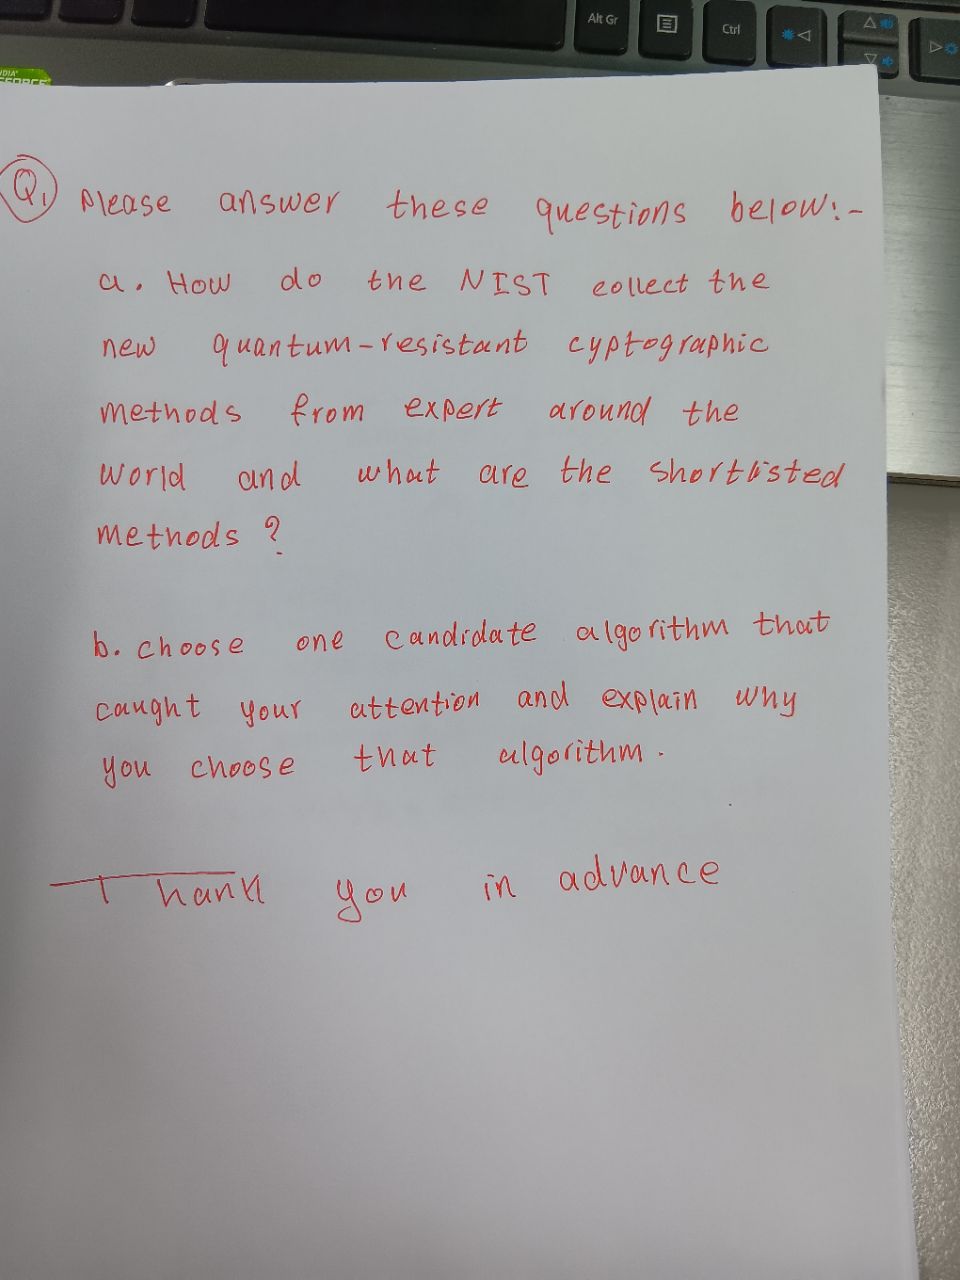 Alt Gr
Ctrl
Q1 Please answer these questions below:-
a. How do the NIST collect the
new quantum-resistant cyptographic
methods from expert around the
world and what are the shortlisted
methods ?
b. choose one candidate algorithm that
caught your attention and explain why
you choose that algorithm.
Thank you in advance